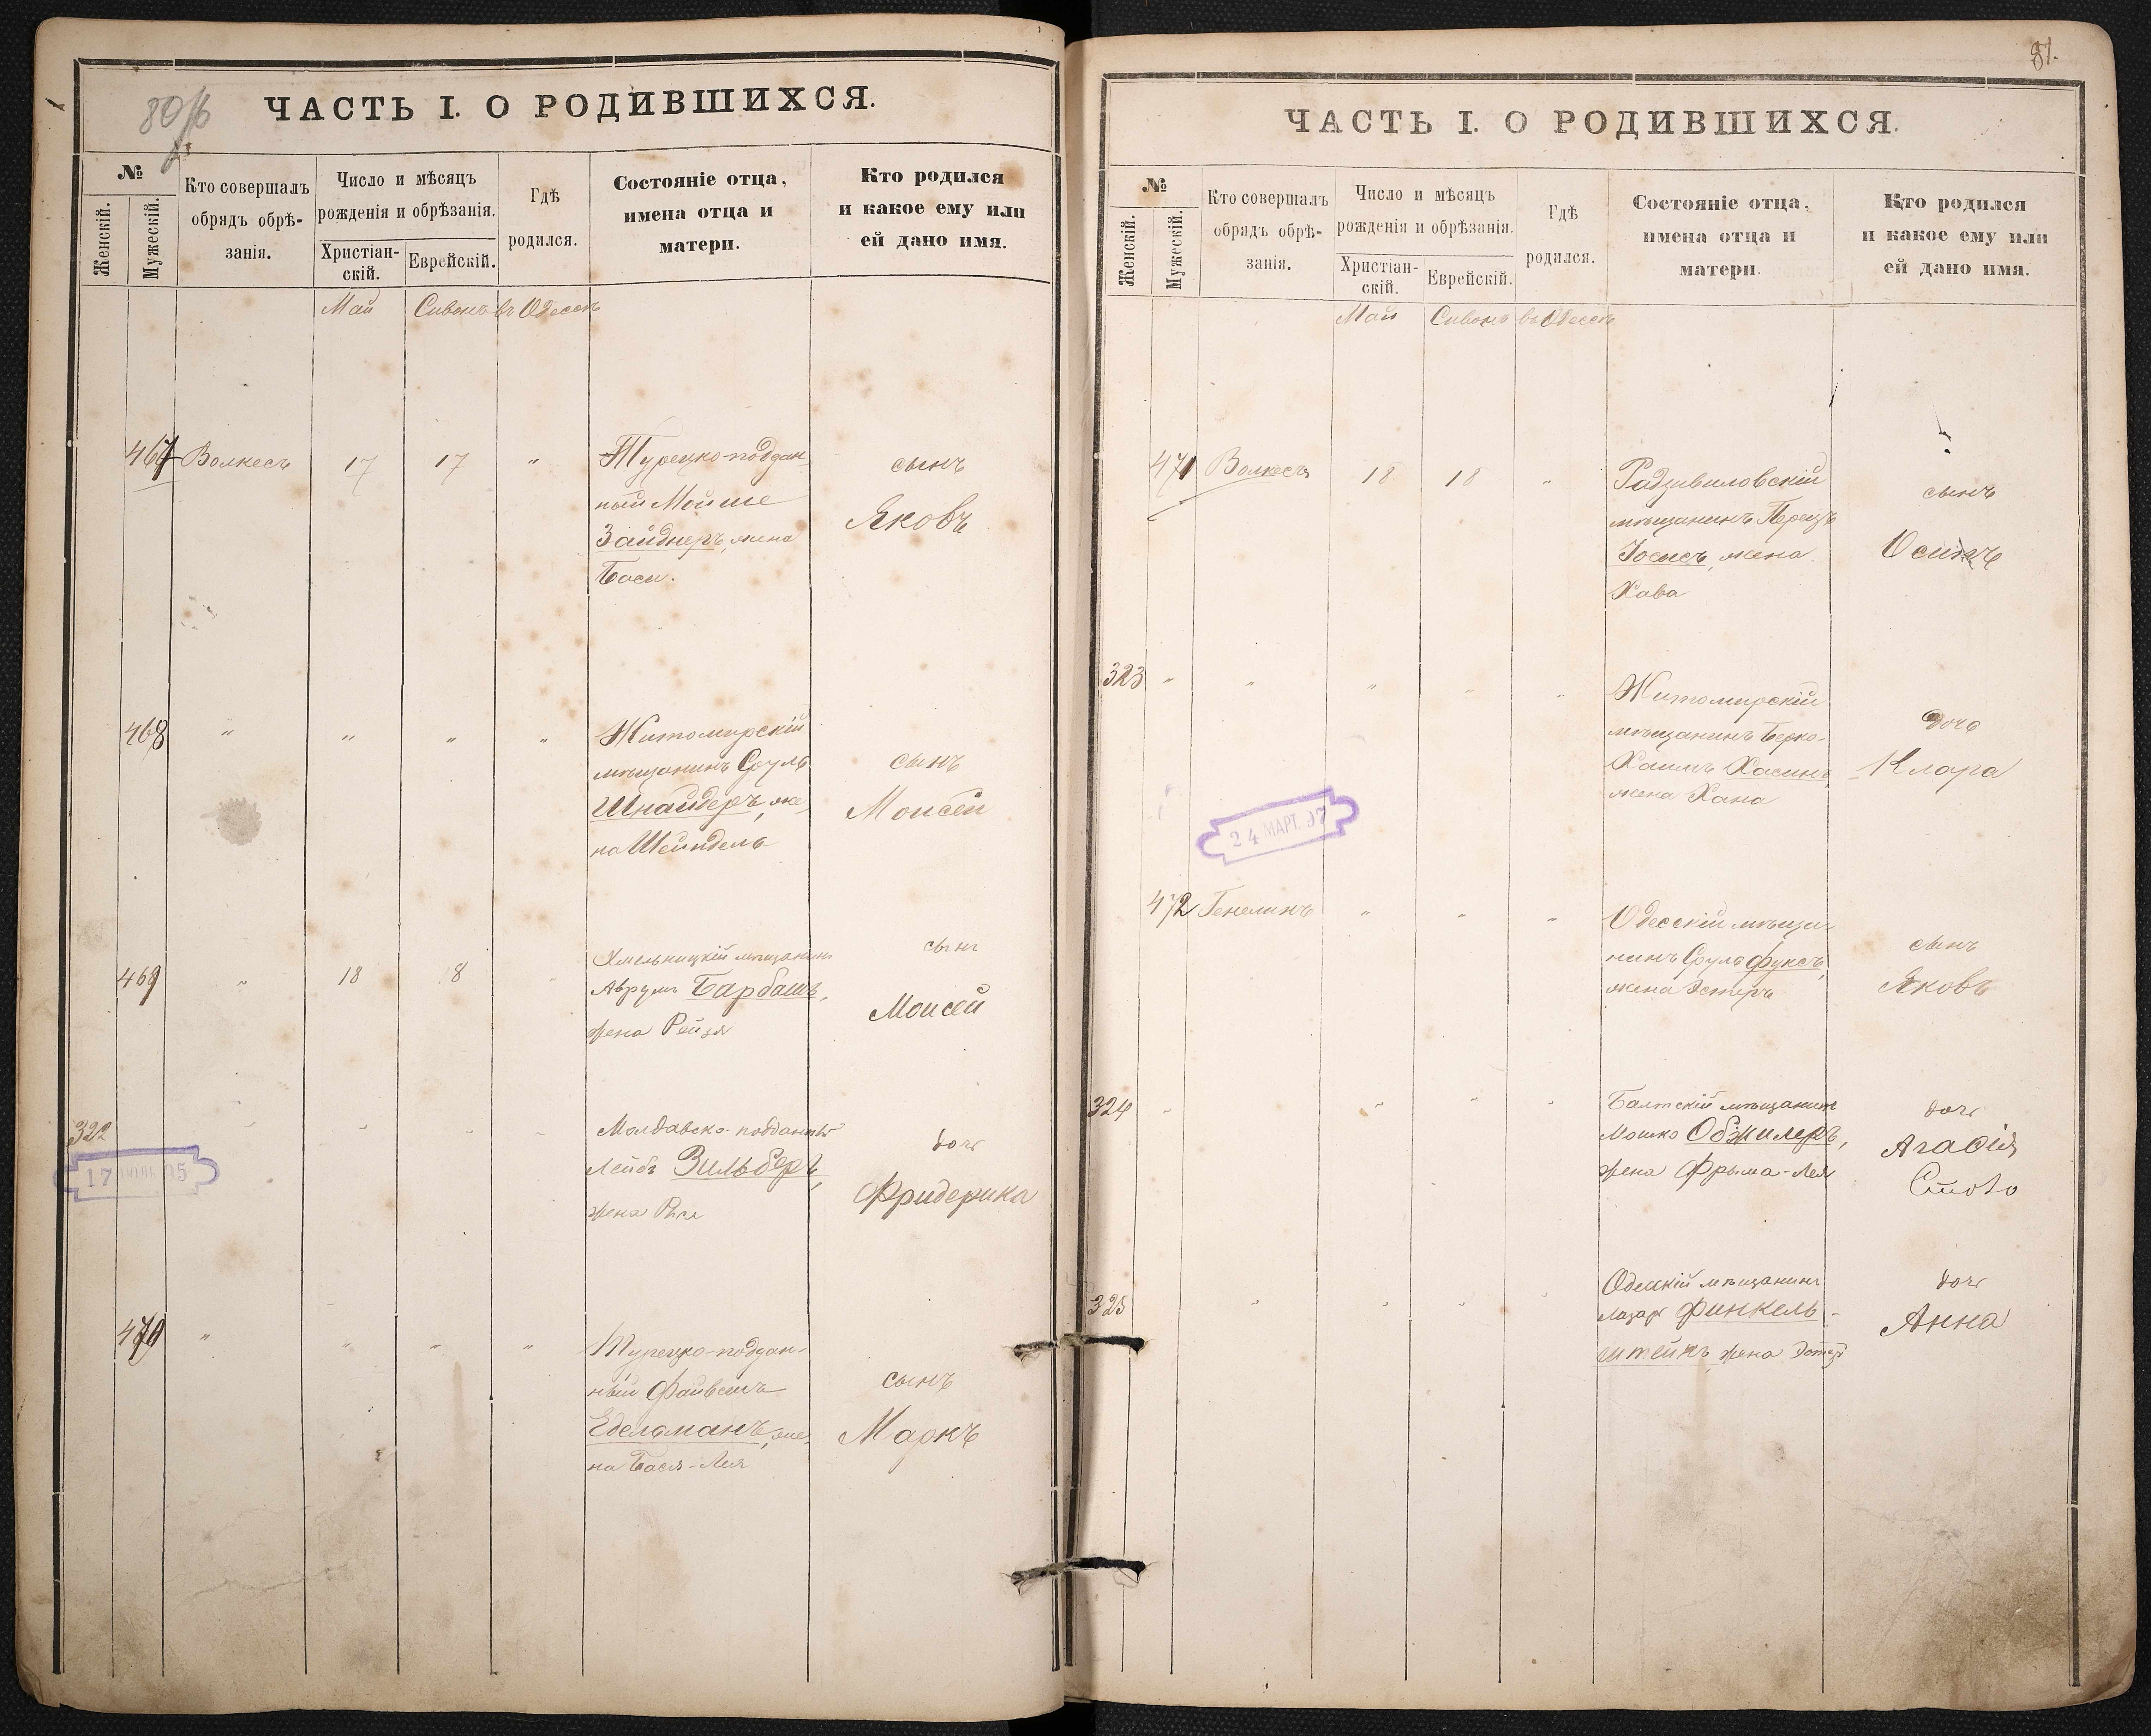 80/б
ЧАСТЬ I. О РОДИВШИХСЯ.
№
Женскій.
Мужескій.
Кто совершалъ
обрядъ обрѣ-
занія.
Число и мѣсяцъ
рожденія и обрѣзанія.
Христіан-
скій.
Еврейскій.
Гдѣ
родился.
Состояніе отца,
имена отца и
матери.
Кто родился
и какое ему или
ей дано имя.
Май Сивонъ въ Одессѣ
467 Волкесъ 17 17 "
Турецко-поддан-
ный Мойше
Зайднеръ, жена
Баси.
сынъ
Яковъ
468 " " " "
Житомирскій
мѣщанинъ Сруль
Шнайдеръ, же-
на Шейндель
сынъ
Моисей
469 " 18 18
Хмельницкій мѣщанинъ
Аврумъ Барбашъ,
жена Рейзя
сынъ
Моисей
322 " " " "
Молдавско-подданный
Лейбъ Зильберъ,
жена
дочь
Фридерика
17 05
470 " " " "
Турецко-поддан-
ный Файвель
Едельманъ, же-
на Бася-Лея
сынъ
Маркъ
81.
ЧАСТЬ I. О РОДИВШИХСЯ.
№
Женскій.
Мужескій.
Кто совершалъ
обрядъ обрѣ-
занія.
Число и мѣсяцъ
рожденія и обрѣзанія.
Христіан-
скій.
Еврейскій.
Гдѣ
родился.
Состояніе отца,
имена отца и
матери.
Кто родился
и какое ему или
ей дано имя.
Май Сивонъ въ Одессѣ
471 Волкесъ 18 18 "
Радзивиловскій
мѣщанинъ Перецъ
жена
Хава
сынъ
Осипъ
323 " " " " "
Житомирскій
мѣщанинъ Берко-
Хаимъ Хасинъ,
жена Хана
дочь
Клара
24 МАРТ. 07
472 Генелинъ " " "
Одесскій мѣща-
нинъ Сруль Фуксъ,
жена Эстеръ
сынъ
Яковъ
324 " " " "
Балтскій мѣщанинъ
Мошко Обжилеръ,
жена Фрыма-Лея
дочь
325 " " " "
Одесскій мѣщанинъ
Лазарь Финкель-
штейнъ, жена Эстеръ
дочь
Анна